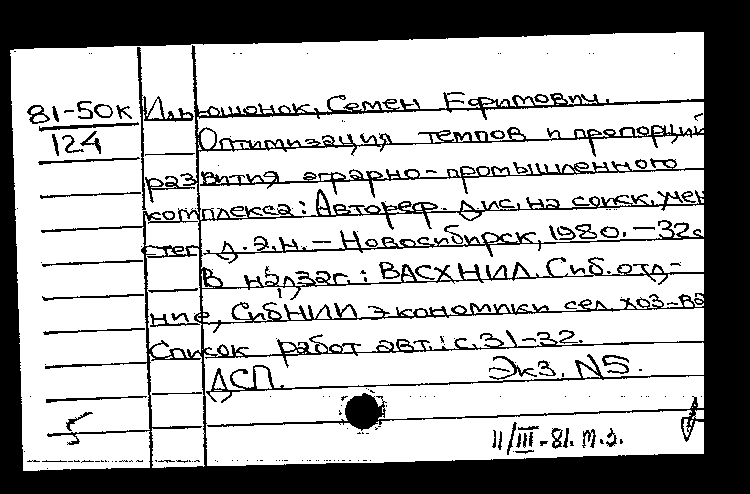 81-50к Ильюшонок, Семен Ефимович.
124 Оптимизация темпов и пропорций
развития аграрно-промышленного
комплекса: Автореф. дис. на соиск. учен
степ. д. э. н. - Новосибирск, 1980. - 32с
В надзаг.: ВАСХНИЛ. Сиб. отд-
ние, СибНИИ экономики сел. хоз-ва
Список работ авт.: с. 31-32.
ДСП. Экз. N5.
5
11/III-81. т.э.